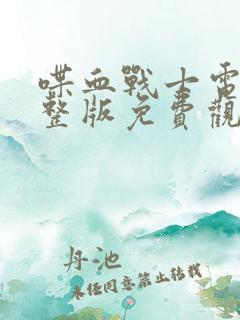 喋血戰士電
整版免費觀
丹池
未经同意禁止转载